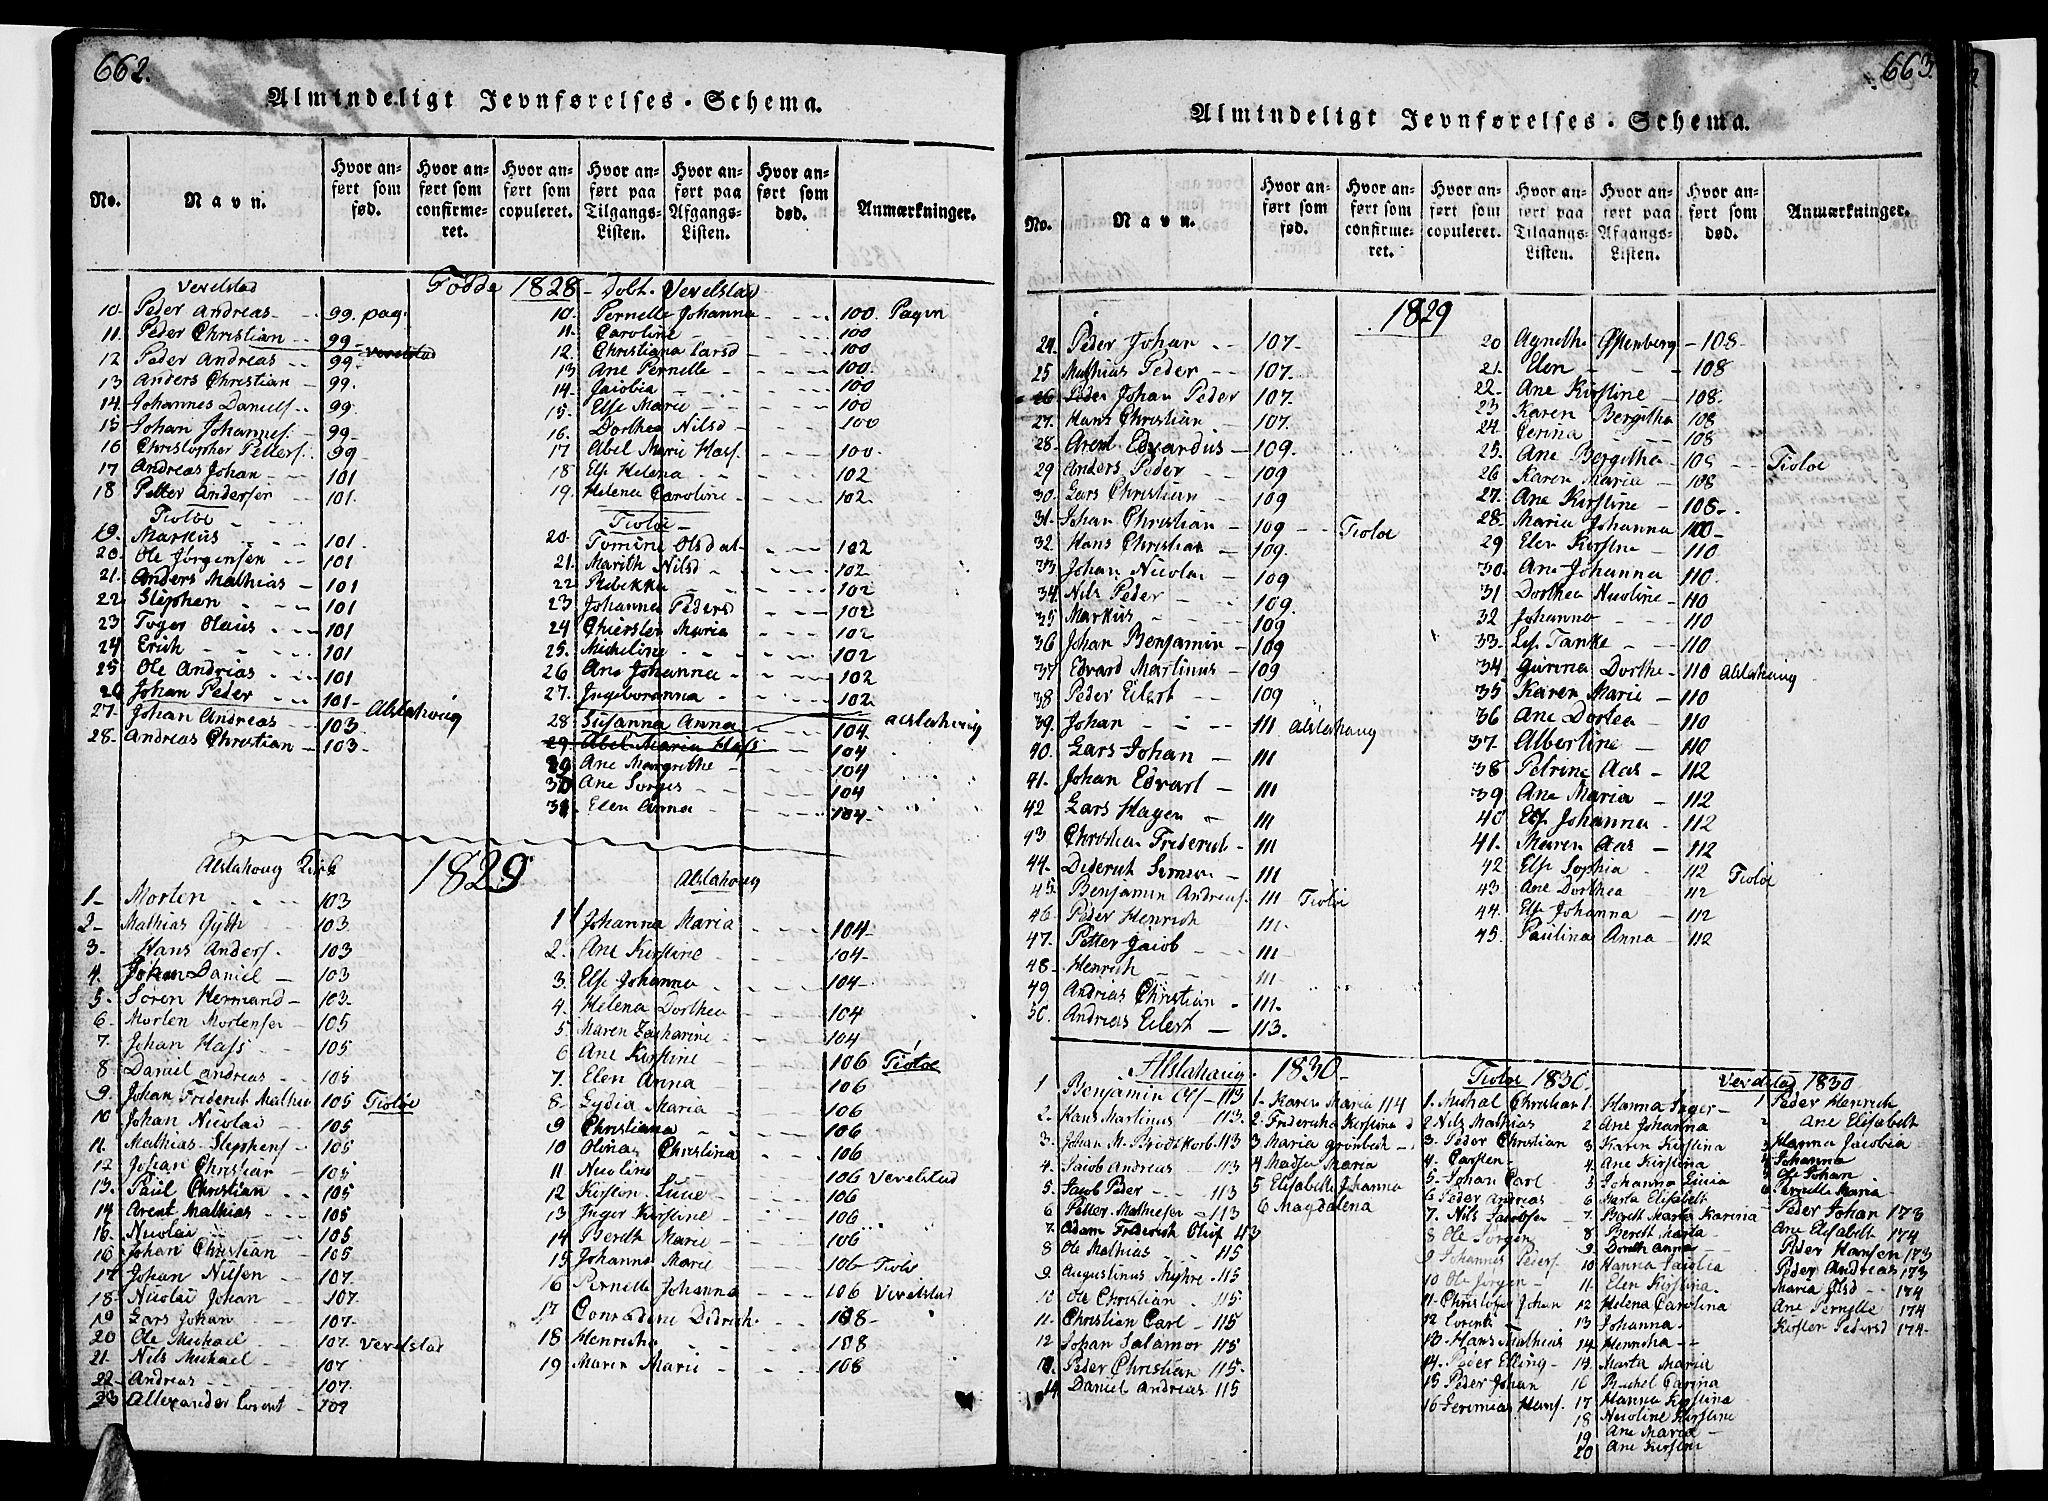 662.
Almindeligt Jevnførelses-Schema.
No.
Navn.
Hvor anført som fød.
Hvor anført som confirmeret.
Hvor anført som copuleret.
Hvor anført paa Tilgangs-Listen.
Hvor anført paa Afgangs-Listen.
Hvor anført som død.
Anmærkninger.
Fødde 1828 - Døbt. Vevelstad
Vevelstad
10. Peder Andreas 99. pag.
11. Peder Christian 99 -
12 Peder Andreas 99 - Vevelstad
13 Anders Christian - 99.
14. Johannes Daniels. 99
15. Johan Johannes. 99 -
16 Christopher Petters. 99 -
17 Andreas Johan - 101
18 Petter Andersen 101.
Tiotøe
19. Markus 101
20. Ole Jørgensen 101
21. Anders Mathias - 101
22 Stephen 101
23 Toger Olaus 101
24 Erich 101
25 Ole Andrias 101
26 Johan Peder 101 -
27. Johan Andreas 103 Alstahoug
28 - Andreas Christian - 103 -
10. Pernelle Johanna 100. Pagin
11. Caroline 100
12. Christiana Larsd 100
13 Ane Pernelle 100.
14. Jacobia 100
15. Else Marie 100
16. Dorthea Nilsd 100
17 Abel Marie Hass. 100
18 Els Helena 102
19. Helena Caroline 102
Tiotøe -
20. Tomine Olsdat - 102
21. Marith Nilsd 102
22 Rebekka 102
23 Johanna Pedersd 102
24 Chiersten Maria 102
25. Micheline 102
26 Ane Johanna 102
27. Ingeboranna 102
28 Susanna Anna 104 Alstahoug
29 Abel Maria Hass 104
30 Ane Margrethe 104
Ane Sørges 104
31 Elen Anna 104
1829
Alstahoug Kirke
1 - Morten 103
2 - Mathias Gytth 103
3. Hans Anders. 103
4. Johan Daniel - 103
5. Søren Hermand - 103.
6. Morten Mortensen 105
7. Johan Hass 105
8 Daniel Andreas 105
9. Johan Frederik Mathis 105 Tiotøe
10 Johan Nicolai 105
11. Mathias Stephens 105
12 Johan Christian 105
13. Paul Christian 105
14 Arent Mathias 105
15. Nicolai 105
16 Johan Christian 105
17 Johan Nilsen 107.
18. Nicolai Johan 107.
19 Lars Johan 107.
20 Ole Michael 107. Vevelstad
21. Nils Michael 107
22 - Andreas 107.
23 Allexander Lorent 107
Alstahoug
1 Johanna Maria 104 -
2. Ane Kirstine 104 -
3. Else Johanna 104 -
4. Helena Dorthea 104
5 Maren Zacharine 104
6 Ane Kirstine 106 Tiotøe
7. Elen Anna 106
8. Lydia Maria 106
9 Christiana 106
10 Olinas Christina 106
11 Nicoline 106 Vevelstad
12 Kirsten Lucie 106
13 Inger Kirstine 106
14 Bereth Marie 106
15 Johanna Marie 106 Tiotøe
16 Pernelle Johanna 106 Vevelstad
17 Conradine Didrich 108 -
18 Henricha 108
19 Maren Marie 108
663.
Almindeligt Jevnførelses-Schema.
No.
Navn.
Hvor anført som fød.
Hvor anført som confirmeret.
Hvor anført som copuleret.
Hvor anført paa Tilgangs-Listen.
Hvor anført paa Afgangs-Listen.
Hvor anført som død.
Anmærkninger.
1829
24. Peder Johan 107 -
25 Mathias Peder 107.
26 Peder Johan Peder 107.
27. Hans Christian 107.
28. Arent Edvardus - 109.
29 Anders Peder 109
30. Lars Christian 109
31. Johan Christian - 109 Tiotøe
32. Hans Christian 109.
33 Johan Nicolai 109
34. Nils Peder 109.
35 Markus 109
36 Johan Benjamin - 109
37 Edvard Martinus - 109
38 Peder Eilert 109
39. Johan 111 Alstahoug
40. Lars Johan 111
41. Johan Edvart - 111
42 Lars Hagen - 111
43 Christian Frederich - 111
44. Diderich Simon - 111
45. Benjamin Andreas. 111 Tiotøe
46 - Peder Henrich 111.
47. Petter Jacob - 111
48 - Henrich 111.
49 Andrias Christian 111.
50. Andreas Eilert - 113.
20 Agnethe - 108 -
21. Elen 108
22. Ane Kirstine - 108 -
23 Karen Bergitha 108
24. Jerina 108
25. Ane Bergitha 108 Tiotøe
26 Karen Maria 108
27. Ane Kirstine - 108 -
28. Maria Johanna
29 Elen Kirstine - 110
30. Ane Johanna 110.
31 Dorthea Nicoline - 110
32 Johanna 110
33. Els. Tanke 110
34 Gurina Dorthe 110 Alstahoug
35 Karen Marie - 110
36 Ane Dortea 110
37. Albertine - 110
38 Petrine Aas - 112
39 Ane Maria - 112
40 Else Johanna - 112
41. Maren Aas 112
42 Else Sophia 112 Tiotøe
43. Ane Dorthea 112
44. Else Johanna 112
45. Paulina Anna - 112
Alstahaug 1830 -
1 Benjamin 113
2. Hans Martinus 113.
3. Johan M. Brodtkorb 113
4. Jacob Andreas 113
5. Jacob Peder 113
6 Petter Mathiesen 113
7. Adam Frederich Oluf 113
8 Ole Mathias 115
9 Augustinus 115
10 Ole Christian 115
11. Christian Carl - 115
12 Johan Salamon 115
13. Peder Christian 115 -
14 Daniel Andreas 115
1 - Karen Maria 114
2 - Fredericha Kirstina
3 Maria Grønbech
4 Maria
5 Elisabeth Johanna
6 Magdalena
Tiotøe 1830.
1. Michal Christian
2 Nils Mathias
3. Peder Christian
4. Carsten
5. Johan Carl
6 Peder Andreas
7. Nils Jacobsen
8 Ole Jørgen
9 Johannes Peders.
10 Ole Jørgen
11. Christofer Johan
12 Lorents
13 Hans Mathias
14. Peder Elling
15 Peder Johan
16 Jeremias Hans.
1. Hanna Inger
2 Ane Johanna
3 Karen Kirstina
4. Ane Kirstina
5 Johanna Lucia
6 Marta Elisabeth
7. Bereth Marta Karina
8 Bereth Marta
9 Doreth Anna
10 Hanna Jacobia
11. Elen Kirstina
12 Helena Carolina
13 Johanna
14 Henricha
15. Marta Maria
16 Rachel Carina
17 Hanna Kirstina
18 Nicoline Kirstine
19 Ane Maria
20 Ane Kirstine
Vevelstad 1830
1 Peder Henrich
2 Ane Elisabeth
3 Hanna Jacobia
4 Johanna
5 Ole Johan
6 Pernelle Maria
Peder Johan 173
Ane Elisabeth 174
Peder Hansen 173
Peder Andreas 173
Maria Olsd 174
Ane Pernelle 174
Kirsten Pedersd 174.